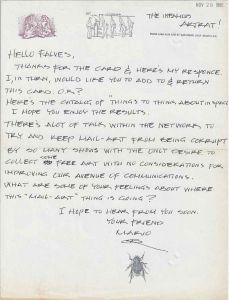 NOV 20
THE INFAMOUS
ARTRAT!
HELLO FALVES,
THANKS FOR THE CARD & HERE'S MY RESPONCE.
I, IN TURN, WOULD LIKE YOU TO ADD TO & RETURN
THIS CARD. O.K.?
HERE'S THE CATALOG OF "THINGS TO THINK ABOUT IN SPACE"
I HOPE YOU ENJOY THE RESULTS.
THERE'S ALOT OF TALK WITHIN THE NETWORKS TO
TRY AND KEEP MAIL-ART FROM BEING CORRUPT
BY SO MANY SHOWS WITH THE ONLY DESIRE TO
COLLECT SOME FREE ART WITH NO CONSIDERATIONS FOR
IMPROVING OUR AVENUE OF COMMUNICATIONS.
WHAT ARE SOME OF YOUR FEELINGS ABOUT WHERE
THIS "MAIL-ART" THING IS GOING?
I HOPE TO HEAR FROM YOU SOON.
YOUR FRIEND
MARIO